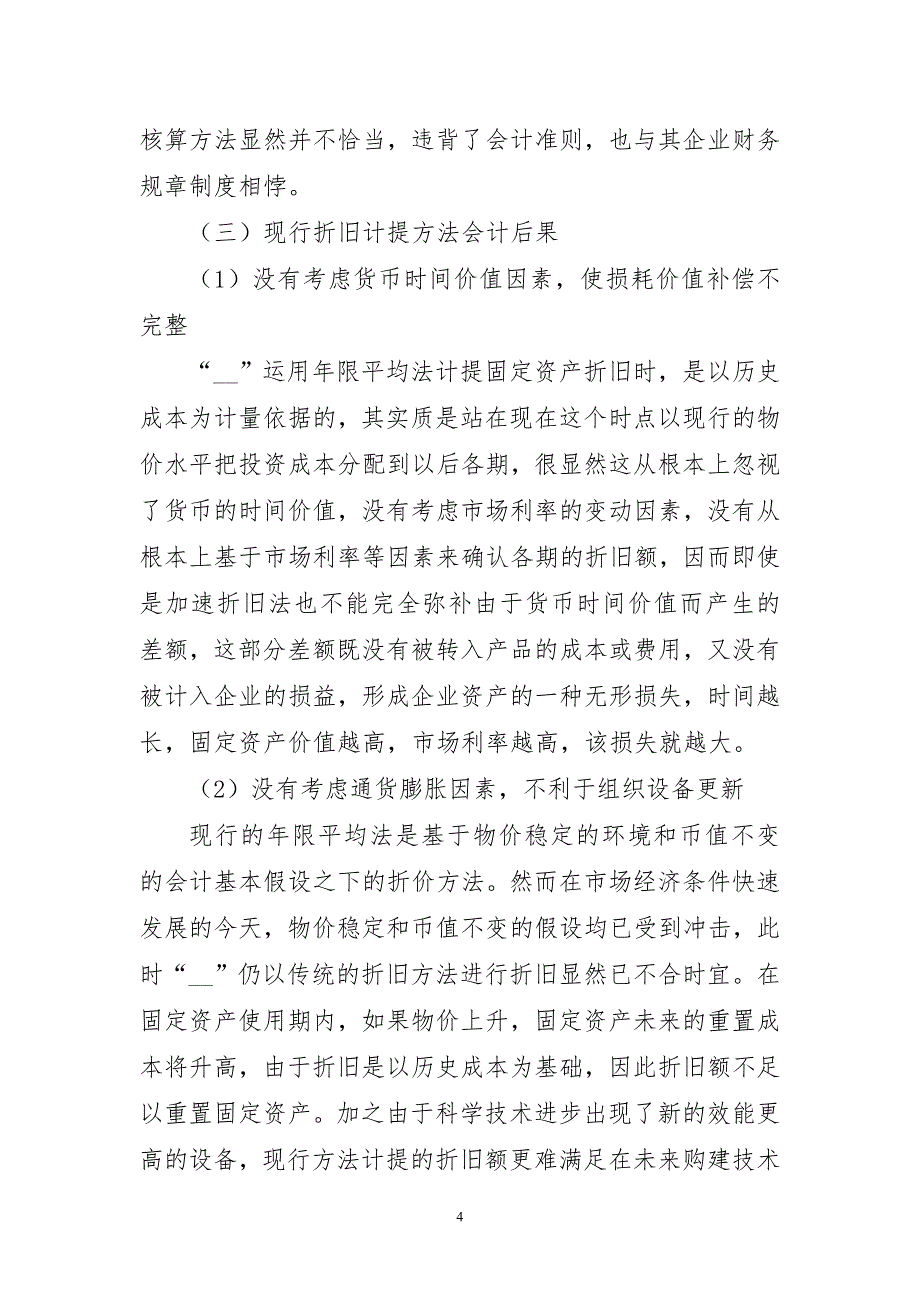 核算方法显然并不恰当，违背了会计准则，也与其企业财务
规章制度相悖。
（三）现行折旧计提方法会计后果
（1）没有考虑货币时间价值因素，使损耗价值补偿不
完整
“__”运用年限平均法计提固定资产折旧时，是以历史
成本为计量依据的，其实质是站在现在这个时点以现行的物
价水平把投资成本分配到以后各期，很显然这从根本上忽视
了货币的时间价值，没有考虑市场利率的变动因素，没有从
根本上基于市场利率等因素来确认各期的折旧额，因而即使
是加速折旧法也不能完全弥补由于货币时间价值而产生的
差额，这部分差额既没有被转入产品的成本或费用，又没有
被计入企业的损益，形成企业资产的一种无形损失，时间越
长，固定资产价值越高，市场利率越高，该损失就越大。
（2）没有考虑通货膨胀因素，不利于组织设备更新
现行的年限平均法是基于物价稳定的环境和币值不变
的会计基本假设之下的折价方法。然而在市场经济条件快速
发展的今天，物价稳定和币值不变的假设均已受到冲击，此
时“__”仍以传统的折旧方法进行折旧显然已不合时宜。在
固定资产使用期内，如果物价上升，固定资产未来的重置成
本将升高，由于折旧是以历史成本为基础，因此折旧额不足
以重置固定资产。加之由于科学技术进步出现了新的效能更
高的设备，现行方法计提的折旧额更难满足在未来购建技术
4